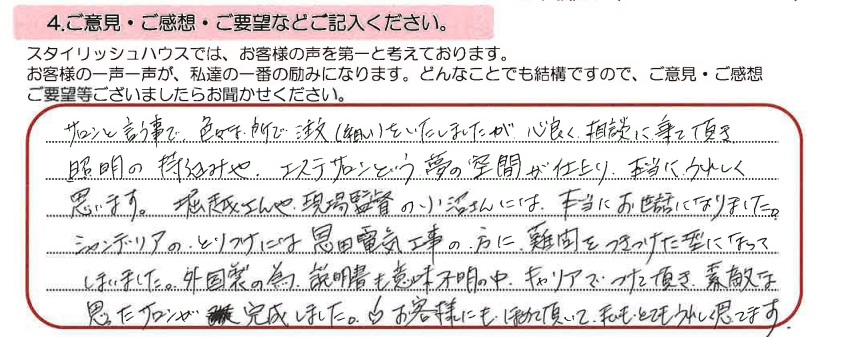 4.ご意見・ご感想・ご要望などご記入ください。
スタイリッシュハウスでは、お客様の声を第一と考えております。
お客様の一声一声が、私達の一番の励みになります。どんなことでも結構ですので、ご意見・ご感想
ご要望等ございましたらお聞かせください。
サロンと言う事で、色々な所で注文(細い)をいたしましたが、心良く、相談に乗て頂き
照明の持込みや、エステサロンという夢の空間が仕上り、本当に、うれしく
思います。堀越さんや、現場監督の小沼さんには、本当にお世話になりました。
シャンデリアの、とりつけには恩田電気工事の、方に、難問をつきつけた型になって
しまいました。外国製の為、説明書も意味不明の中、キャリアでつけて頂き、素敵な
思ったサロンが完成しました。お客様にも、ほめて頂いて、私も、とてもうれしく思てます。